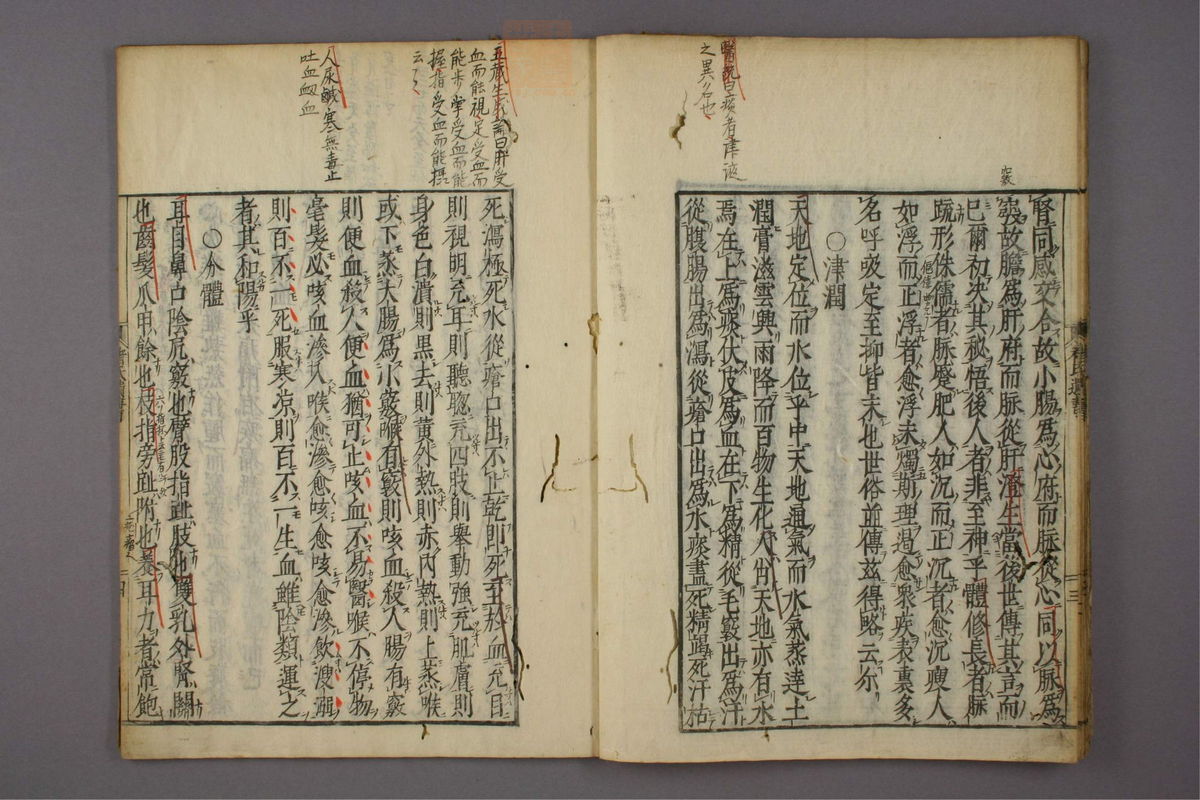 腎同感交合故小腸爲心府而脉從心同以脉爲
故膽爲肝府而脉從肝澄生當後世傳其言而
巳爾初決其秘悟後人者非至神乎體修長者脉
疏形侏儒者脉蹙肥人如沉而正沉者愈沉瘦人
如浮而正浮者愈浮未燭期理遏愈衆疾表裏多
名呼吸定至抑皆未也世俗並傳兹得略云尔
〇津潤
天地定位而水位乎中天地通氣而水氣蒸達土
潤膏滋雲興雨降而百物生化人肖天地亦有水
焉在上爲痰伏皮爲血在下爲精從毛竅出爲汗
從腹腸出爲瀉從瘡口出爲水痰盡死精竭死汗枯
醫說曰痰者津液
之異名也
竅
死瀉極死水從瘡口出不止乾即死至於血充目
則視明充耳則聽聰充四肢則舉動強充肌膚則
身色白潰則黒去則黄外熱則赤内熱則上蒸喉
或下蒸大腸爲小竅喉有竅則咳血殺人腸有竅
則便血殺人便血猶可止咳血不易醫喉不停物
毫髮必咳血滲入喉愈滲愈咳愈咳愈滲飲溲溺
則百不一死服寒凉則百不一生血雖陰類運之
者其和陽乎
〇分體
耳目鼻口陰尻竅也臂股指趾肢也雙乳外腎關
也齒髮爪甲餘也枝指旁趾附也養耳力者常飽
五藏生成論曰肝受
血而能視足受血而
能步掌受血而能
握指受血而能攝
云々
人尿鹹寒無毒止
吐血衂血